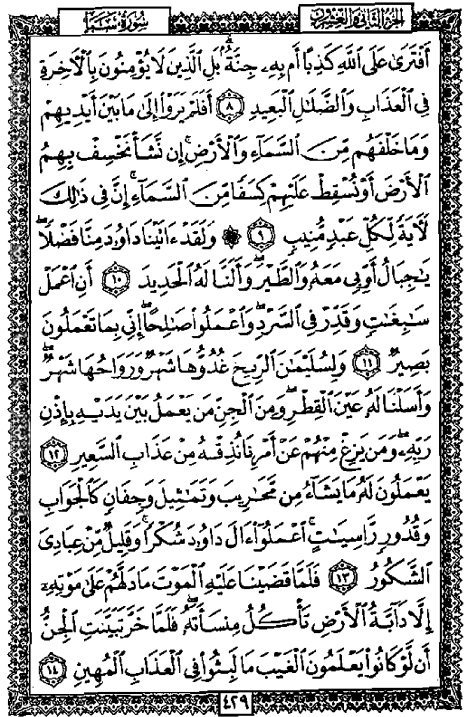 الجزء الثاني والعشرون
سورة سبإ
أَفْتَرَىٰ عَلَى ٱللَّهِ كَذِبًا أَم بِهِۦ جِنَّةٌۢ بَلِ ٱلَّذِينَ لَا يُؤْمِنُونَ بِٱلْـَٔاخِرَةِ
فِى ٱلْعَذَابِ وَٱلضَّلَـٰلِ ٱلْبَعِيدِ ٨ أَفَلَمْ يَرَوْا۟ إِلَىٰ مَا بَيْنَ أَيْدِيهِمْ
وَمَا خَلْفَهُم مِّنَ ٱلسَّمَآءِ وَٱلْأَرْضِ ۚ إِن نَّشَأْ نَخْسِفْ بِهِمُ
ٱلْأَرْضَ أَوْ نُسْقِطْ عَلَيْهِمْ كِسَفًا مِّنَ ٱلسَّمَآءِ ۚ إِنَّ فِى ذَٰلِكَ
لَـَٔايَةً لِّكُلِّ عَبْدٍ مُّنِيبٍ ٩ ۞ وَلَقَدْ ءَاتَيْنَا دَاوُۥدَ مِنَّا فَضْلًا ۖ
يَـٰجِبَالُ أَوِّبِى مَعَهُۥ وَٱلطَّيْرَ ۖ وَأَلَنَّا لَهُ ٱلْحَدِيدَ ١٠ أَنِ ٱعْمَلْ
سَـٰبِغَـٰتٍ وَقَدِّرْ فِى ٱلسَّرْدِ ۖ وَٱعْمَلُوا۟ صَـٰلِحًا ۖ إِنِّى بِمَا تَعْمَلُونَ
بَصِيرٌ ١١ وَلِسُلَيْمَـٰنَ ٱلرِّيحَ غُدُوُّهَا شَهْرٌ وَرَوَاحُهَا شَهْرٌ ۖ
وَأَسَلْنَا لَهُۥ عَيْنَ ٱلْقِطْرِ ۖ وَمِنَ ٱلْجِنِّ مَن يَعْمَلُ بَيْنَ يَدَيْهِ بِإِذْنِ
رَبِّهِۦ ۖ وَمَن يَزِغْ مِنْهُمْ عَنْ أَمْرِنَا نُذِقْهُ مِنْ عَذَابِ ٱلسَّعِيرِ ١٢
يَعْمَلُونَ لَهُۥ مَا يَشَآءُ مِن مَّحَـٰرِيبَ وَتَمَـٰثِيلَ وَجِفَانٍ كَٱلْجَوَابِ
وَقُدُورٍ رَّاسِيَـٰتٍ ۚ ٱعْمَلُوٓا۟ ءَالَ دَاوُۥدَ شُكْرًا ۚ وَقَلِيلٌ مِّنْ عِبَادِىَ
ٱلشَّكُورُ ١٣ فَلَمَّا قَضَيْنَا عَلَيْهِ ٱلْمَوْتَ مَا دَلَّهُمْ عَلَىٰ مَوْتِهِۦٓ
إِلَّا دَآبَّةُ ٱلْأَرْضِ تَأْكُلُ مِنسَأَتَهُۥ ۖ فَلَمَّا خَرَّ تَبَيَّنَتِ ٱلْجِنُّ
أَن لَّوْ كَانُوا۟ يَعْلَمُونَ ٱلْغَيْبَ مَا لَبِثُوا۟ فِى ٱلْعَذَابِ ٱلْمُهِينِ ١٤
٤٢٩